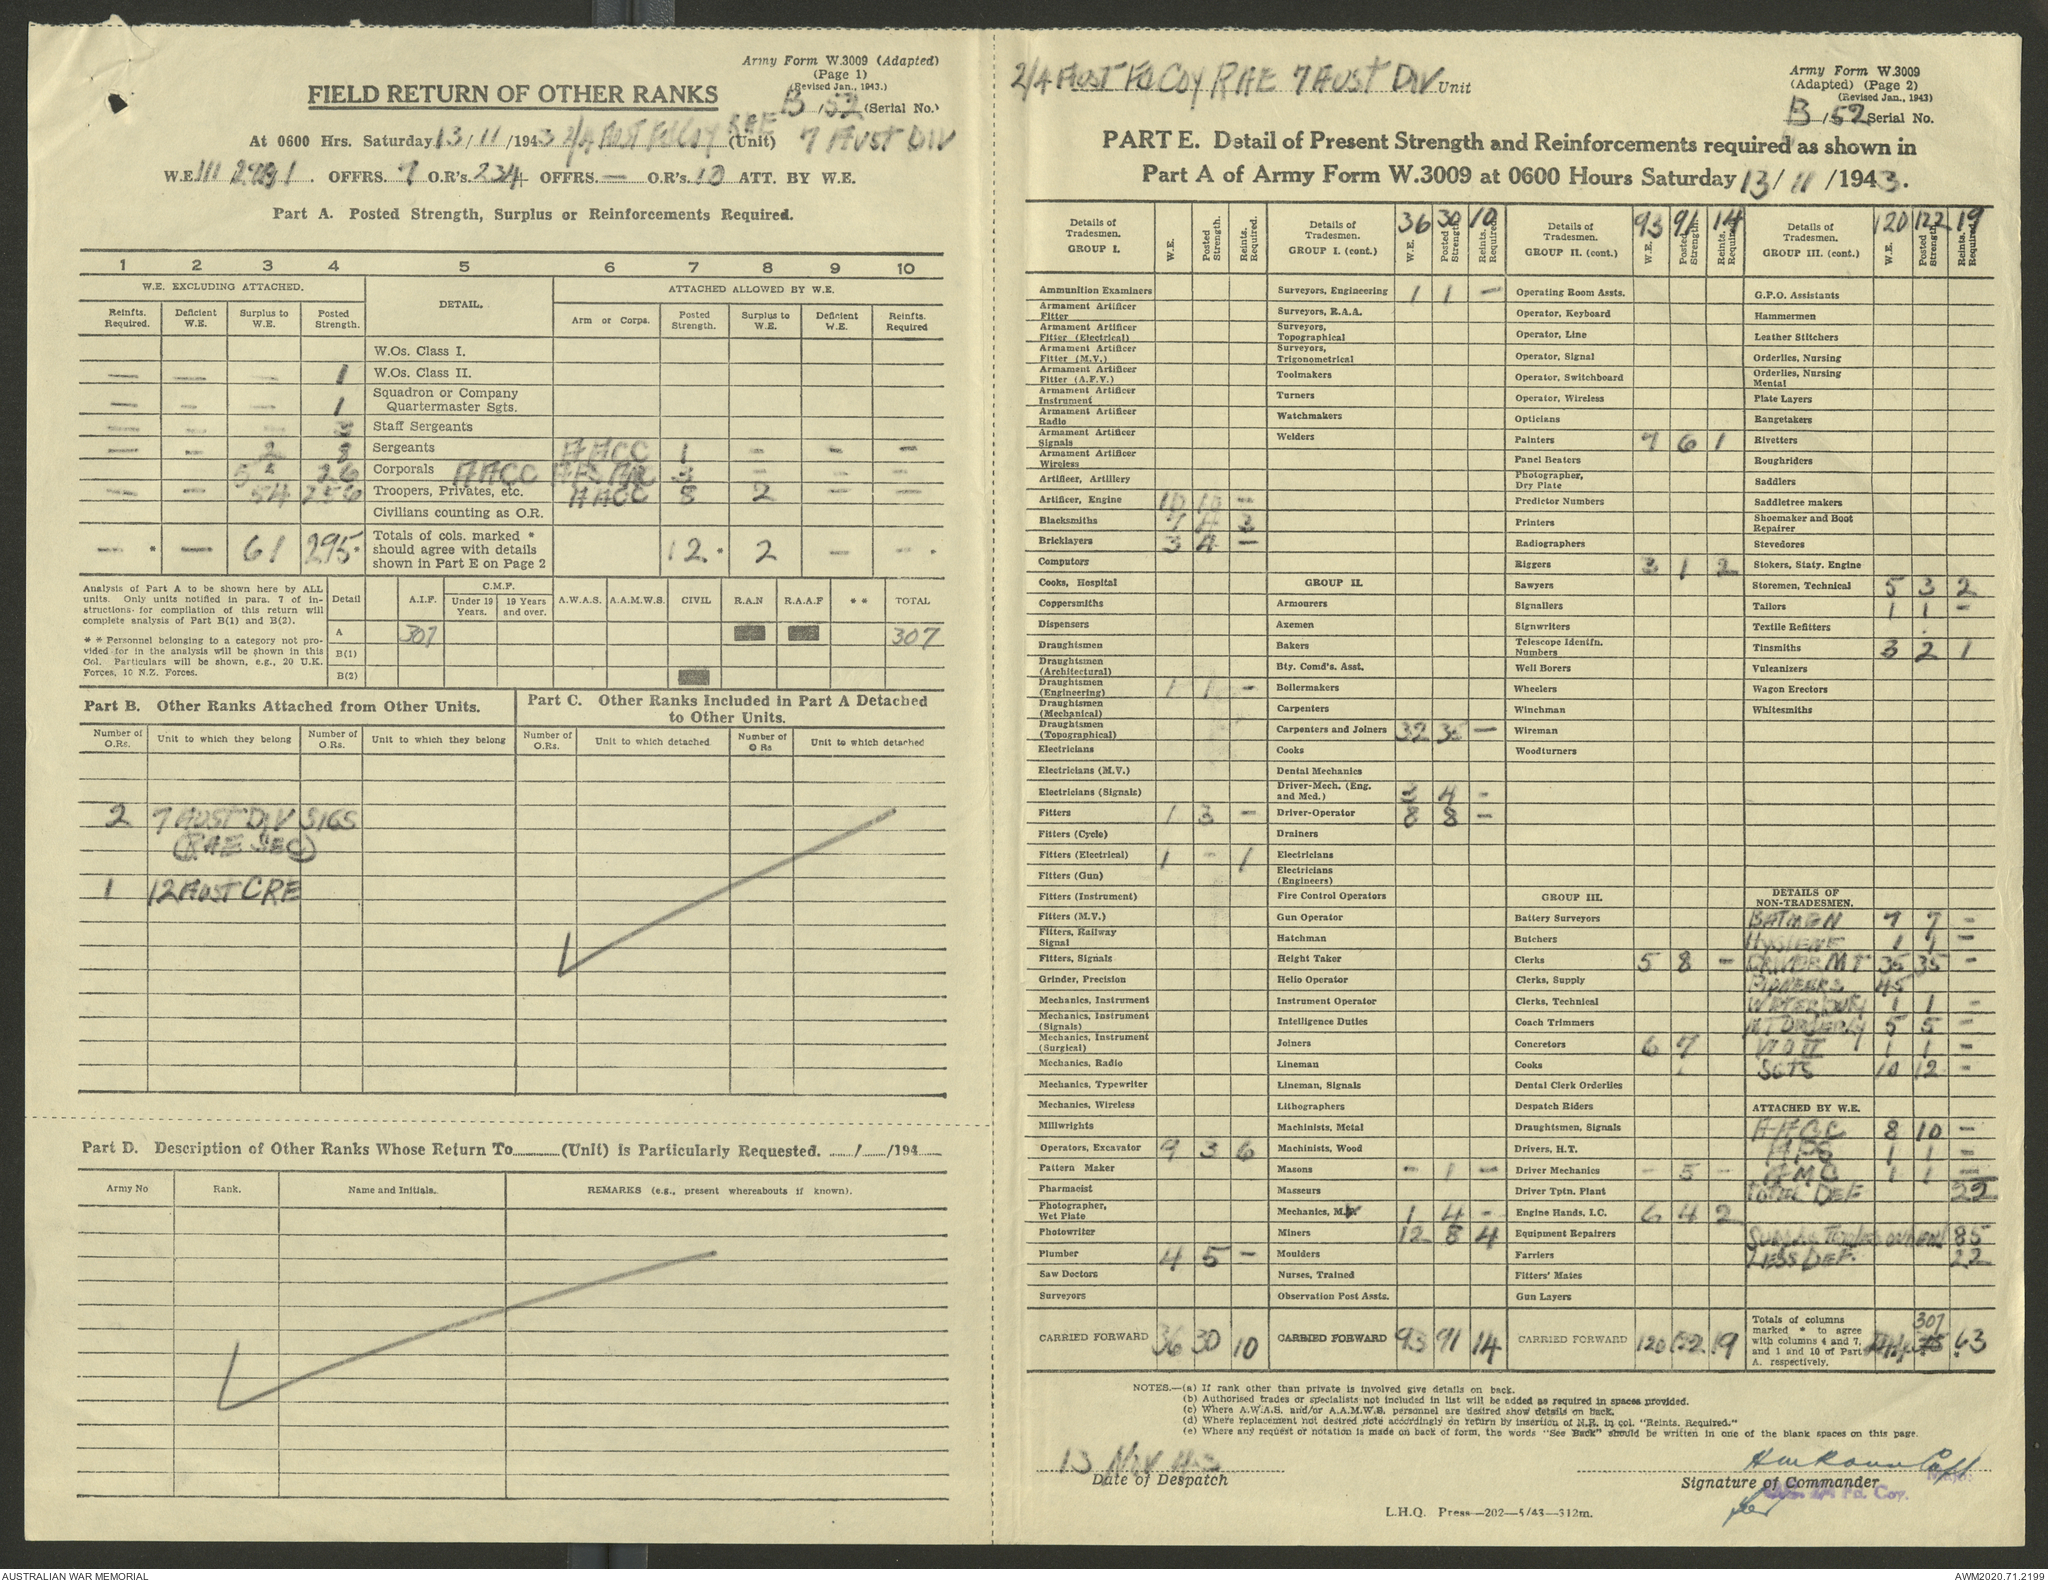 Army Form W.3009 (Adapted)
(Page 1)
(Revised Jan., 1943.)
FIELD RETURN OF OTHER RANKS
B/52 (Serial No.)
At 0600 Hrs. Saturday 13/11/1943 2/4 AUST FD COY RAE (Unit) 7 AUST DIV
W.E. III OFFRS. 7 O.R's. 234 OFFRS. — O.R's. 10 ATT. BY W.E.
Part A. Posted Strength, Surplus or Reinforcements Required.
1 2 3 4 5 6 7 8 9 10
W.E. EXCLUDING ATTACHED. DETAIL. ATTACHED ALLOWED BY W.E.
Reinfts. Required. Deficient W.E. Surplus to W.E. Posted Strength. Arm or Corps. Posted Strength. Surplus to W.E. Deficient W.E. Reinfts. Required
W.Os. Class I.
— — — 1 W.Os. Class II.
— — — 1 Squadron or Company Quartermaster Sgts.
— — — 3 Staff Sergeants
— — 2 8 Sergeants AACC 1 — — —
5 26 Corporals AACC AFS AMC 3 — — —
— — 54 256 Troopers, Privates, etc. AACC 8 2 — —
Civilians counting as O.R.
— * — 61 295 * Totals of cols. marked * should agree with details shown in Part E on Page 2 12 * 2 — — *
Analysis of Part A to be shown here by ALL units. Only units notified in para. 7 of instructions for compilation of this return will complete analysis of Part B(1) and B(2).
* * Personnel belonging to a category not provided for in the analysis will be shown in this Col. Particulars will be shown, e.g., 20 U.K. Forces, 10 N.Z. Forces.
Detail A.I.F. C.M.F. Under 19 Years. 19 Years and over. A.W.A.S. A.A.M.W.S. CIVIL R.A.N R.A.A.F * * TOTAL
A 307 307
B(1)
B(2)
Part B. Other Ranks Attached from Other Units.
Part C. Other Ranks Included in Part A Detached to Other Units.
Number of O.Rs. Unit to which they belong Number of O.Rs. Unit to which they belong Number of O.Rs. Unit to which detached Number of O Rs Unit to which detached
2 7 AUST DIV SIGS
(RAE SEC)
1 12 AUST CRE
Part D. Description of Other Ranks Whose Return To (Unit) is Particularly Requested. / /194
Army No Rank. Name and Initials. REMARKS (e.g., present whereabouts if known).
2/4 AUST FD COY RAE 7 AUST DIV Unit
Army Form W.3009
(Adapted) (Page 2)
(Revised Jan., 1943)
B/52 Serial No.
PART E. Detail of Present Strength and Reinforcements required as shown in
Part A of Army Form W.3009 at 0600 Hours Saturday 13/11/1943.
Details of Tradesmen. GROUP I. W.E. Posted Strength. Reints. Required.
Ammunition Examiners
Armament Artificer Fitter
Armament Artificer Fitter (Electrical)
Armament Artificer Fitter (M.V.)
Armament Artificer Fitter (A.F.V.)
Armament Artificer Instrument
Armament Artificer Radio
Armament Artificer Signals
Armament Artificer Wireless
Artificer, Artillery
Artificer, Engine 10 10 —
Blacksmiths 7 4 3
Bricklayers 3 4 —
Computors
Cooks, Hospital
Coppersmiths
Dispensers
Draughtsmen
Draughtsmen (Architectural)
Draughtsmen (Engineering) 1 1 —
Draughtsmen (Mechanical)
Draughtsmen (Topographical)
Electricians
Electricians (M.V.)
Electricians (Signals)
Fitters 1 3 —
Fitters (Cycle)
Fitters (Electrical) 1 — 1
Fitters (Gun)
Fitters (Instrument)
Fitters (M.V.)
Fitters, Railway Signal
Fitters, Signals
Grinder, Precision
Mechanics, Instrument
Mechanics, Instrument (Signals)
Mechanics, Instrument (Surgical)
Mechanics, Radio
Mechanics, Typewriter
Mechanics, Wireless
Millwrights
Operators, Excavator 9 3 6
Pattern Maker
Pharmacist
Photographer, Wet Plate
Photowriter
Plumber 4 5 —
Saw Doctors
Surveyors
CARRIED FORWARD 36 30 10
Details of Tradesmen. GROUP I. (cont.) 36 30 10 W.E. Posted Strength. Reints. Required.
Surveyors, Engineering 1 1 —
Surveyors, R.A.A.
Surveyors, Topographical
Surveyors, Trigonometrical
Toolmakers
Turners
Watchmakers
Welders
GROUP II.
Armourers
Axemen
Bakers
Bty. Comd's. Asst.
Boilermakers
Carpenters
Carpenters and Joiners 32 35 —
Cooks
Dental Mechanics
Driver-Mech. (Eng. and Med.) 3 4 —
Driver-Operator 8 8 —
Drainers
Electricians
Electricians (Engineers)
Fire Control Operators
Gun Operator
Hatchman
Height Taker
Helio Operator
Instrument Operator
Intelligence Duties
Joiners
Lineman
Lineman, Signals
Lithographers
Machinists, Metal
Machinists, Wood
Masons — 1 —
Masseurs
Mechanics, M.V. 1 4 —
Miners 12 8 4
Moulders
Nurses, Trained
Observation Post Assts.
CARRIED FORWARD 93 91 14
Details of Tradesmen. GROUP II. (cont.) 93 91 14 W.E. Posted Strength. Reints. Required
Operating Room Assts.
Operator, Keyboard
Operator, Line
Operator, Signal
Operator, Switchboard
Operator, Wireless
Opticians
Painters 7 6 1
Panel Beaters
Photographer, Dry Plate
Predictor Numbers
Printers
Radiographers
Riggers 3 1 2
Sawyers
Signallers
Signwriters
Telescope Identfn. Numbers
Well Borers
Wheelers
Winchman
Wireman
Woodturners
GROUP III.
Battery Surveyors
Butchers
Clerks 5 8 —
Clerks, Supply
Clerks, Technical
Coach Trimmers
Concretors 6 7
Cooks
Dental Clerk Orderlies
Despatch Riders
Draughtsmen, Signals
Drivers, H.T.
Driver Mechanics — 5 —
Driver Tptn. Plant
Engine Hands, I.C. 6 4 2
Equipment Repairers
Farriers
Fitters' Mates
Gun Layers
CARRIED FORWARD 120 122 19
Details of Tradesmen. GROUP III. (cont.) 120 122 19 W.E. Posted Strength. Reints. Required.
G.P.O. Assistants
Hammermen
Leather Stitchers
Orderlies, Nursing
Orderlies, Nursing Mental
Plate Layers
Rangetakers
Rivetters
Roughriders
Saddlers
Saddletree makers
Shoemaker and Boot Repairer
Stevedores
Stokers, Staty. Engine
Storemen, Technical 5 3 2
Tailors 1 1 —
Textile Refitters
Tinsmiths 3 2 1
Vulcanizers
Wagon Erectors
Whitesmiths
DETAILS OF NON-TRADESMEN.
BATMEN 7 7 —
HYGIENE 1 1 —
DRIVER MT 35 35 —
PIONEERS 45
WATER DUTY 1 1 —
MT ORDERLY 5 5 —
WO II 1 1 —
SGTS 10 12 —
ATTACHED BY W.E.
AACC 8 10 —
AFS 1 1 —
AMC 1 1 —
TOTAL DEF 22
85
LESS DEF. 22
Totals of columns marked * to agree with columns 4 and 7, and 1 and 10 of Part A. respectively. 307 63
NOTES.—(a) If rank other than private is involved give details on back.
(b) Authorised trades or specialists not included in list will be added as required in spaces provided.
(c) Where A.W.A.S. and/or A.A.M.W.S. personnel are desired show details on back.
(d) Where replacement not desired note accordingly on return by insertion of N.R. in col. "Reints. Required."
(e) Where any request or notation is made on back of form, the words "See Back" should be written in one of the blank spaces on this page.
13 Nov 43
Date of Despatch
Capt
Signature of Commander
Fd. Coy.
L.H.Q. Press—202—5/43—312m.
AUSTRALIAN WAR MEMORIAL
AWM2020.71.2199